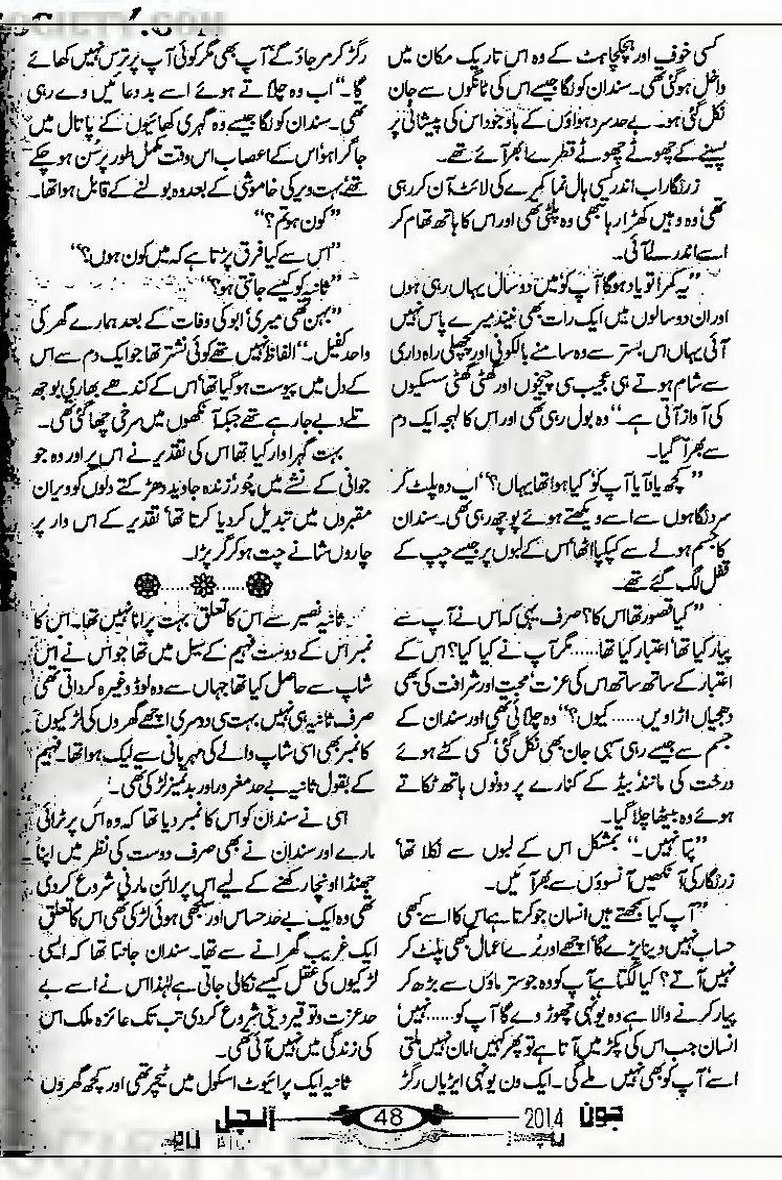 کسی خوف اور ہچکچاہٹ کے وہ اس تاریک مکان میں
داخل ہوگئی تھی۔ سندان کو لگا جیسے اس کی ٹانگوں سے جان
نکل گئی ہو۔ بے حد سرد ہواؤں کے باوجود اس کی پیشانی پر
پسینے کے چھوٹے چھوٹے قطرے ابھر آئے تھے۔
زرنگار اب اندر کسی ہال نما کمرے کی لائٹ آن کررہی
تھی' وہ وہیں کھڑا رہا تبھی وہ پلٹی تھی اور اس کا ہاتھ تھام کر
اسے اندر لے آئی۔
"یہ کمرا تو یاد ہوگا آپ کو' میں دو سال یہاں رہی ہوں
اور ان دو سالوں میں ایک رات بھی نیند میرے پاس نہیں
آئی یہاں اس بستر سے وہ سامنے بالکونی اور پچھلی راہ داری
سے شام ہوتے ہی عجیب سی چیخوں اور گھٹی گھٹی سسکیوں
کی آواز آتی ہے۔" وہ بول رہی تھی اور اس کا لہجہ ایک دم
سے بھرا گیا۔
"کچھ یاد آیا آپ کو' کیا ہوا تھا یہاں؟" اب وہ پلٹ کر
سرد نگاہوں سے اسے دیکھتے ہوئے پوچھ رہی تھی۔ سندان
کا جسم ہولے سے کپکپا اٹھا' اس کے لبوں پر جیسے چپ کے
قفل لگ گئے تھے۔
"کیا قصور تھا اس کا؟ صرف یہی کہ اس نے آپ سے
پیار کیا تھا' اعتبار کیا تھا...... مگر آپ نے کیا کیا؟ اس کے
اعتبار کے ساتھ ساتھ اس کی عزت' محبت اور شرافت کی بھی
دھجیاں اڑا دیں...... کیوں؟" وہ چلائی تھی اور سندان کے
جسم سے جیسے رہی سہی جان بھی نکل گئی' کسی کٹے ہوئے
درخت کی مانند بیڈ کے کنارے پر دونوں ہاتھ ٹکاتے
ہوئے وہ بیٹھتا چلا گیا۔
"پتا نہیں۔" بمشکل اس کے لبوں سے نکلا تھا'
زرنگار کی آنکھیں آنسوؤں سے بھر آئیں۔
"آپ کیا سمجھتے ہیں انسان جو کرتا ہے اس کا اسے کبھی
حساب نہیں دینا پڑے گا' اچھے اور بُرے اعمال کبھی پلٹ کر
نہیں آتے؟ کیا لگتا ہے آپ کو وہ جو ستر ماؤں سے بڑھ کر
پیار کرنے والا ہے وہ یونہی چھوڑ دے گا آپ کو...... نہیں'
انسان جب اس کی پکڑ میں آتا ہے تو پھر کہیں امان نہیں ملتی
اسے' آپ کو بھی نہیں ملے گی۔ ایک دن یونہی ایڑیاں رگڑ
رگڑ کر مر جاؤ گے آپ بھی مگر کوئی آپ پر ترس نہیں کھائے
گا۔" اب وہ چلاتے ہوئے اسے بددعائیں دے رہی
تھی۔ سندان کو لگا جیسے وہ گہری کھائیوں کے پاتال میں
جاگرا ہو' اس کے اعصاب اس وقت مکمل طور پر سُن ہوچکے
تھے' بہت دیر کی خاموشی کے بعد وہ بولنے کے قابل ہوا تھا۔
"کون ہو تم؟"
"اس سے کیا فرق پڑتا ہے کہ میں کون ہوں؟"
"ثانیہ کو کیسے جانتی ہو؟"
"بہن تھی میری' ابو کی وفات کے بعد ہمارے گھر کی
واحد کفیل۔" الفاظ نہیں تھے کوئی نشتر تھا جو ایک دم سے اس
کے دل میں پیوست ہوگیا تھا' اس کے کندھے بھاری بوجھ
تلے دبے جارہے تھے جبکہ آنکھوں میں سرخی چھا گئی تھی۔
بہت گہرا وار کیا تھا اس کی تقدیر نے اس پر اور وہ جو
جوانی کے نشے میں چُور زندہ جاوید دھڑکتے دلوں کو ویران
مقبروں میں تبدیل کردیا کرتا تھا' تقدیر کے اس وار پر
چاروں شانے چت ہوکر گر پڑا۔
ثانیہ نصیر سے اس کا تعلق بہت پرانا نہیں تھا۔ اس کا
نمبر اس کے دوست فہیم کے سیل میں تھا جو اس نے اس
شاپ سے حاصل کیا تھا جہاں سے وہ لوڈ وغیرہ کرواتی تھی
صرف ثانیہ ہی نہیں بہت سی دوسری اچھے گھروں کی لڑکیوں
کا نمبر بھی اسی شاپ والے کی مہربانی سے لیک ہوا تھا۔ فہیم
کے بقول ثانیہ بے حد مغرور اور بدتمیز لڑکی تھی۔
اسی نے سندان کو اس کا نمبر دیا تھا کہ وہ اس پر ٹرائی
مارے اور سندان نے بھی صرف دوست کی نظر میں اپنا
جھنڈا اونچا رکھنے کے لیے اس پر لائن مارنی شروع کردی
تھی' وہ ایک بے حد حساس اور سلجھی ہوئی لڑکی تھی اس کا تعلق
ایک غریب گھرانے سے تھا۔ سندان جانتا تھا کہ ایسی
لڑکیوں کی عقل کیسے نکالی جاتی ہے لہٰذا اس نے اسے بے
حد عزت و توقیر دینی شروع کردی تب تک عائزہ ملک اس
کی زندگی میں نہیں آئی تھی۔
ثانیہ ایک پرائیوٹ اسکول میں ٹیچر تھی اور کچھ گھروں
جون 2014 48 آنچل